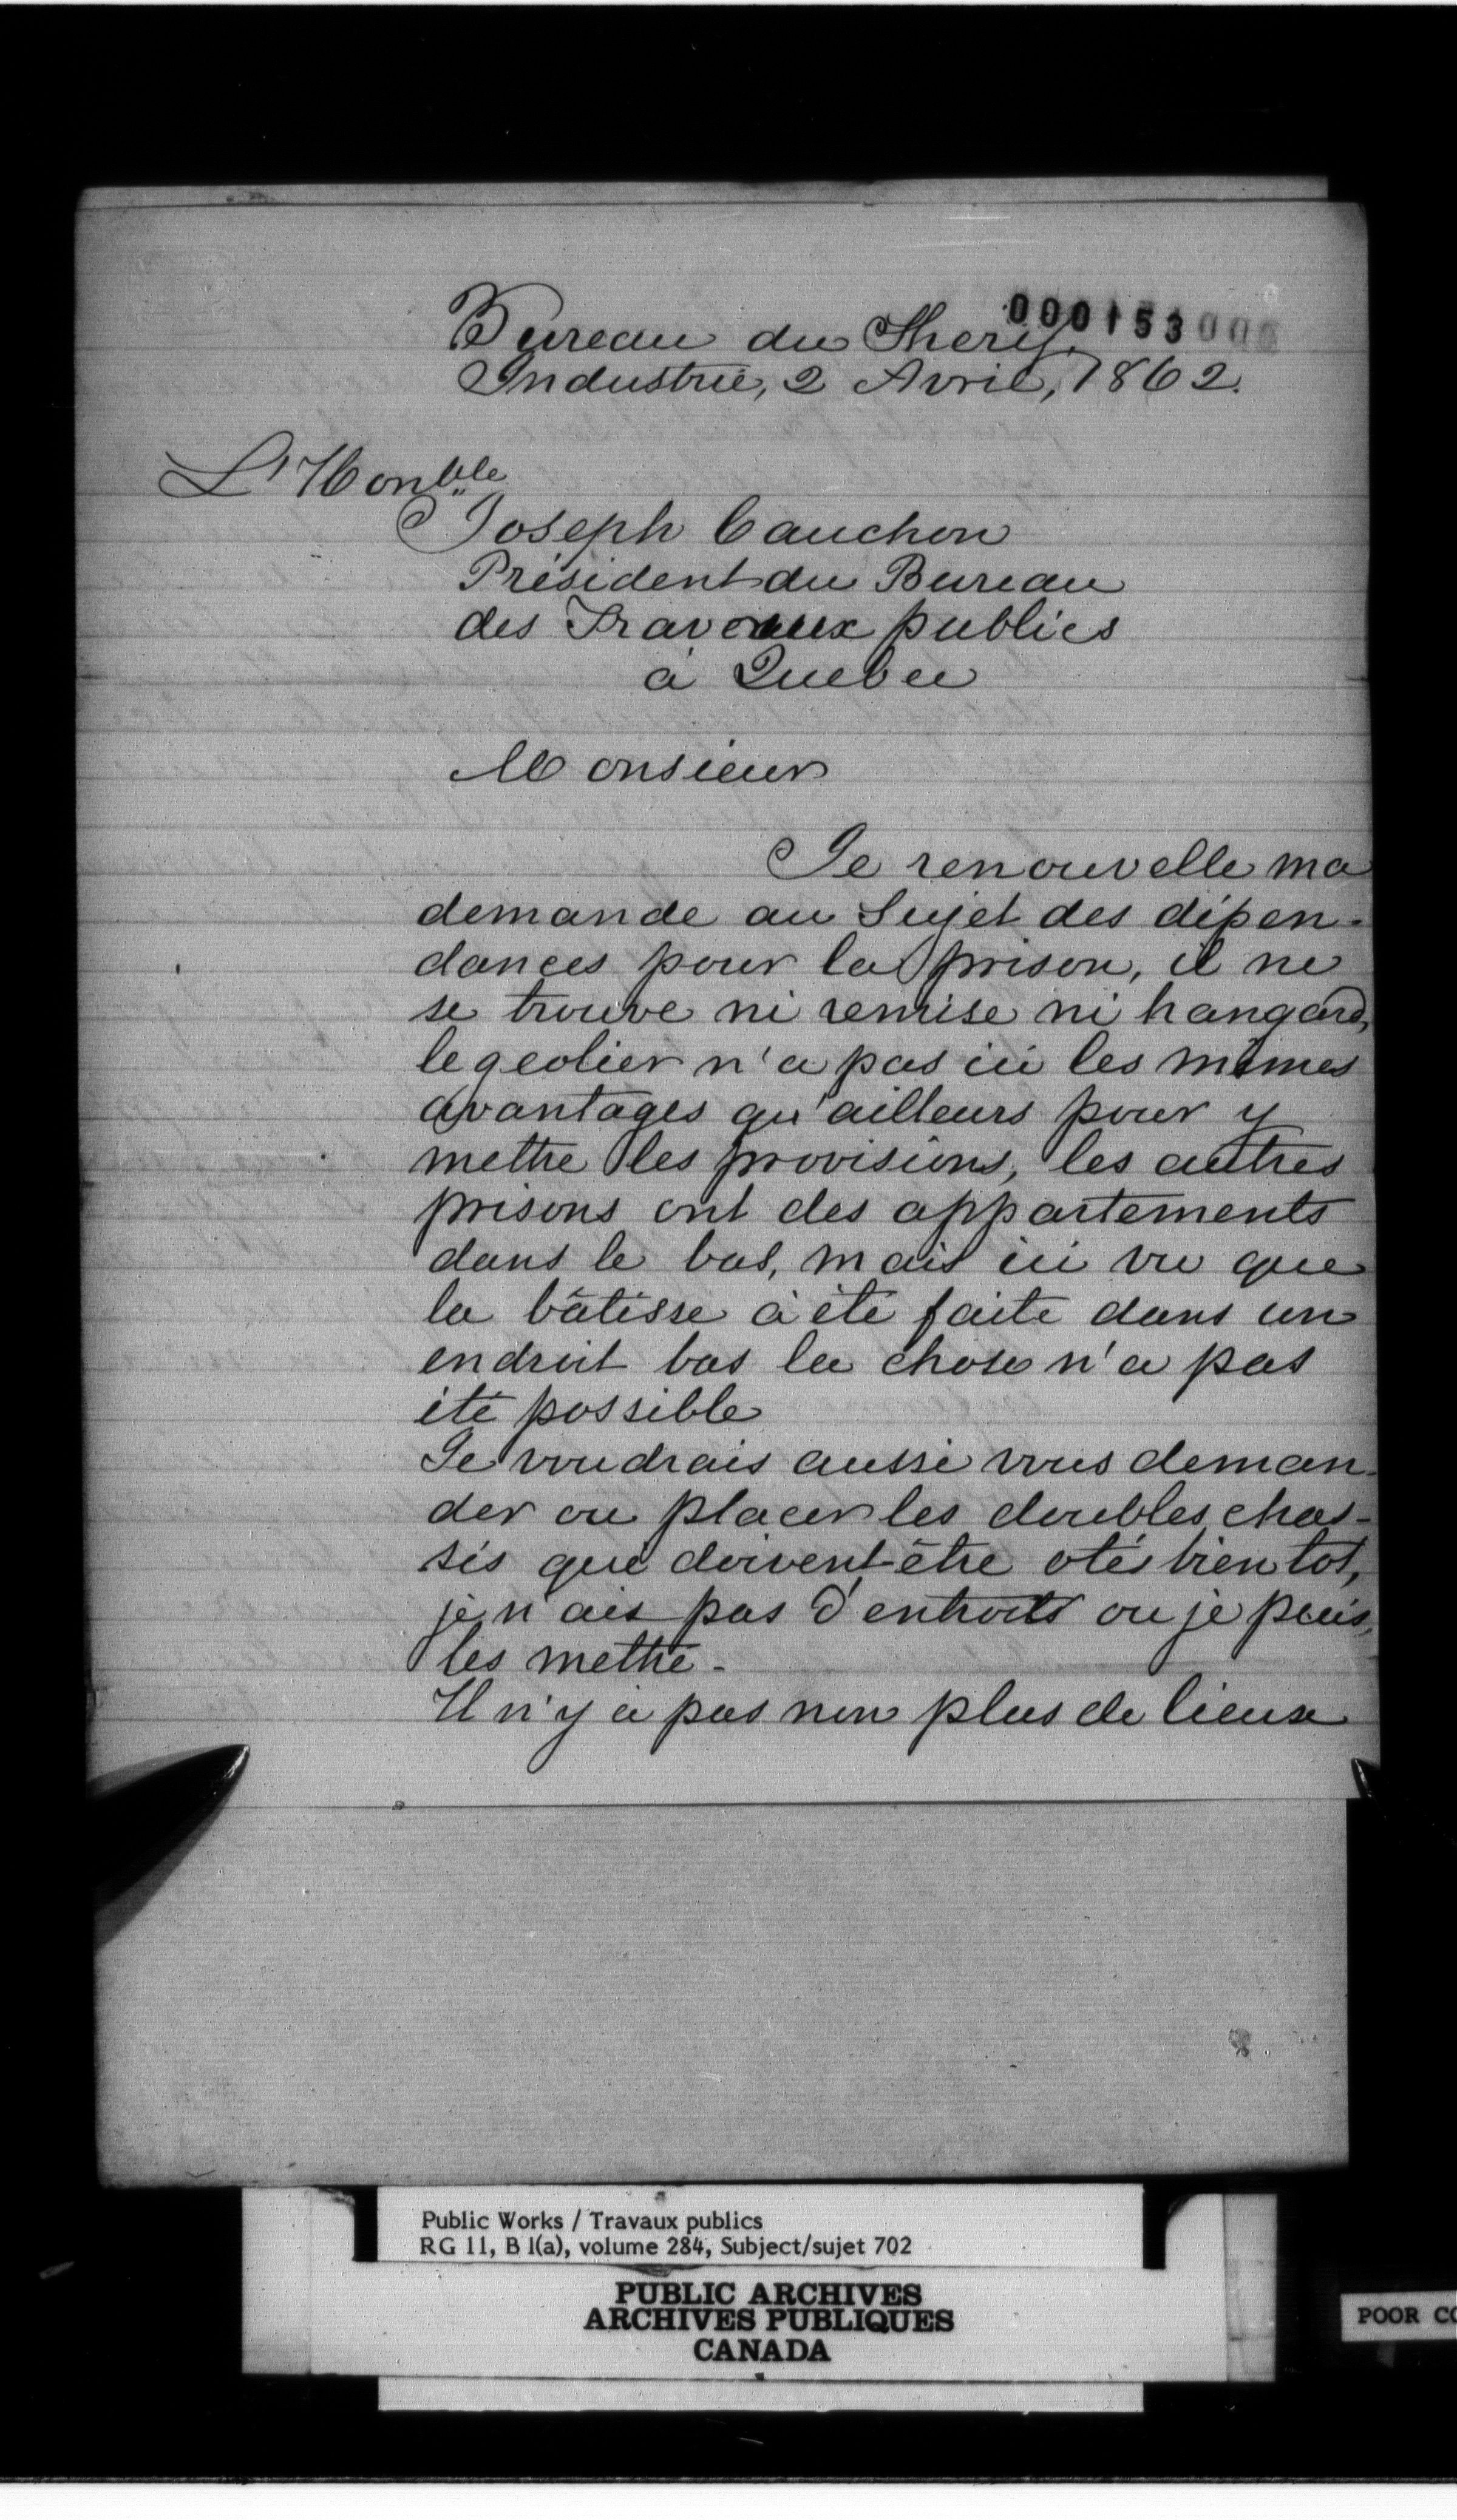 000153
Bureau du Sherif,
Industrie, 2 Avril, 1862.
L'Honble
Joseph Cauchon
Président du Bureau
des Travaux publics
à Quebec
Monsieur
Je renouvelle ma
demande au Sujet des dépen-
dances pour la prison, il ne
se trouve ni remise ni hangard,
le geolier n'a pas ici les mêmes
avantages qu'ailleurs pour y
mettre les provisions, les autres
prisons ont des appartements
dans le bas, mais ici vu que
la bâtisse à été faite dans un
endroit bas la chose n'a pas
été possible
Je voudrais aussi vous deman-
der ou placer les doubles chas-
sis que doivent être otés bientot,
je n'ais pas d'entroits ou je puis,
les mettre.
Il n'y a pas non plus de lieux
Public Works / Travaux publics
RG 11, B 1(a), volume 284, Subject/sujet 702
PUBLIC ARCHIVES
ARCHIVES PUBLIQUES
CANADA
POOR CO